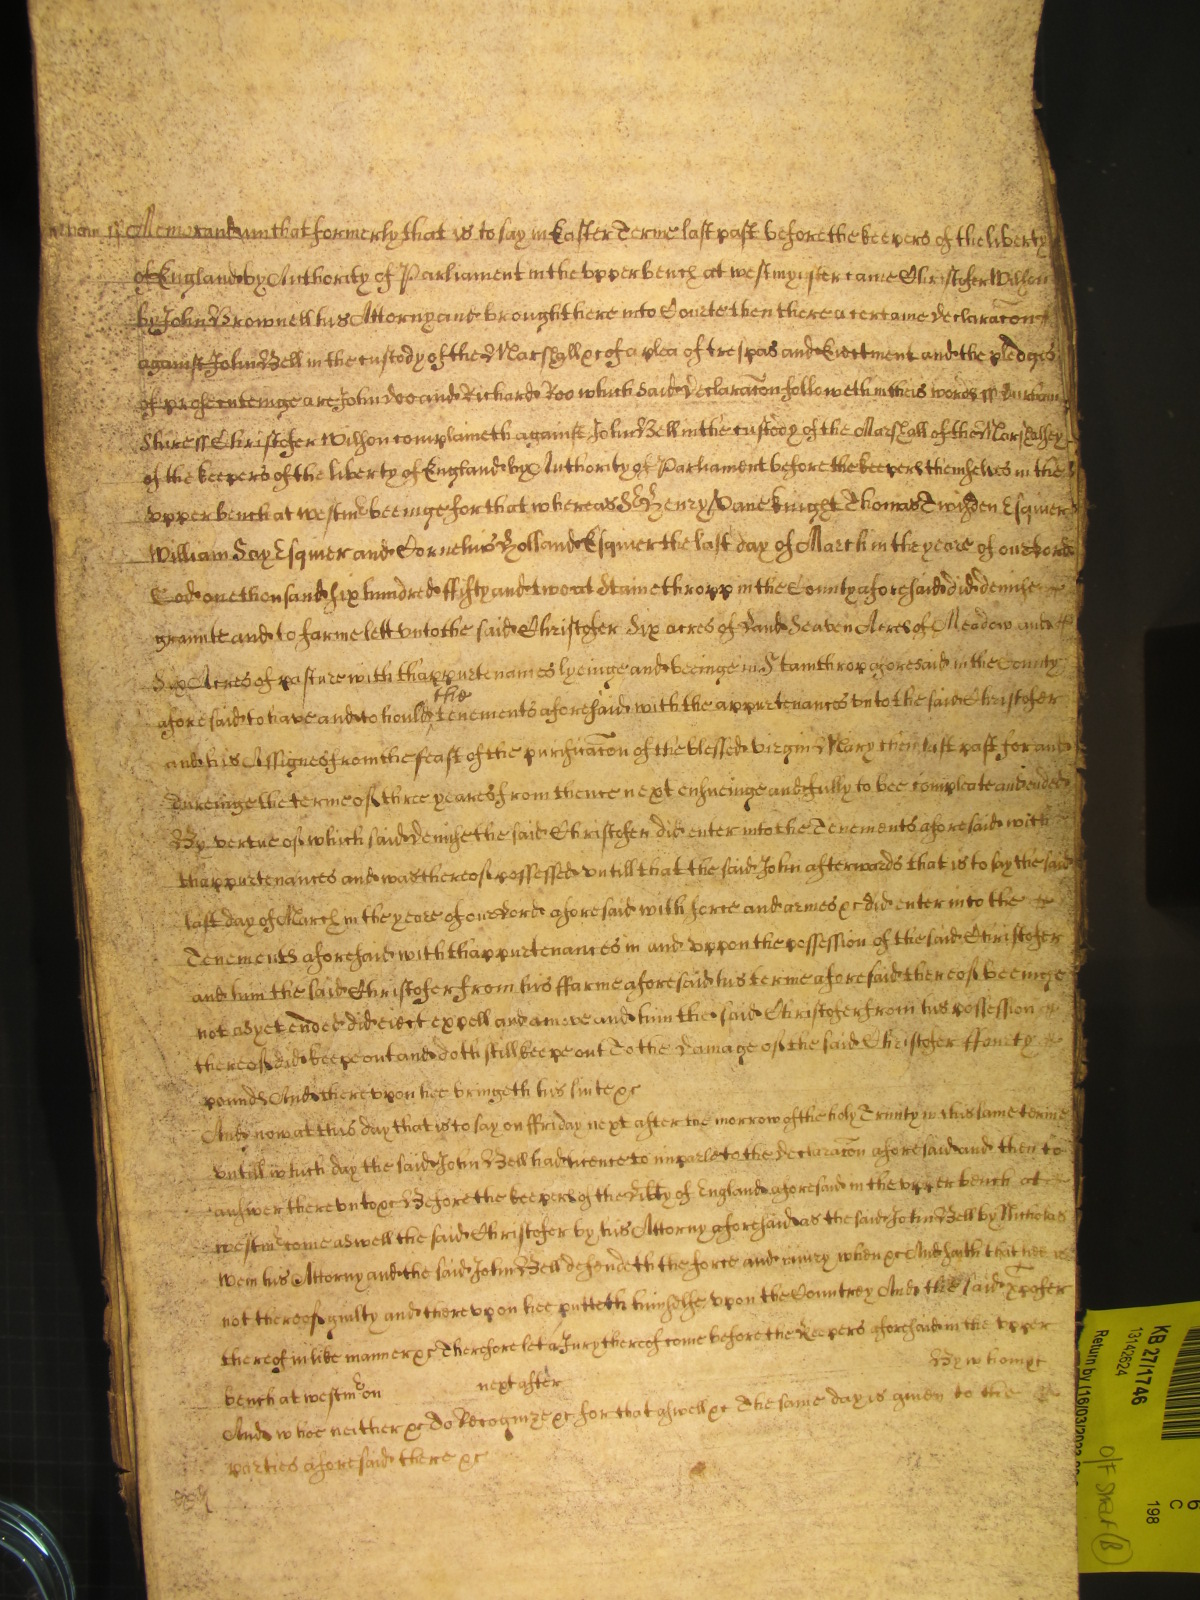 Memorandum that formerly that is to say in Easter Terme last past before the keepers of the liberty
of England by Authority of Parliament in the upper bench at westmynster came Christofer Wilson
by John Brownell his Attorny and brought there into Courte then there a certaine declaracon
against John Bell in the custody of the Marshall &c of a plea of trespas and Eiectment and the pledges
of prosecuteinge are John Doo and Richard Roo which said declaracon followeth in theis wordes ss Durham
shire ss Christofer Wilson complaineth against John Bell in the custody of the Marshall of the Marshalsey
of the keepers of the liberty of England by Authority of Parliament before the keepers themselves in the
upper bench at westmr beeinge for that whereas Sr Henry Vane knight Thomas Twisden Esquier
William Say Esquier and Cornelius Holland Esquier the last day of March in the yeare of our Lord
God one thousand six hundred fifty and two at Stainethropp in the County aforesaid did demise
graunte and to farme lett unto the said Christofer Six acres of Land Seaven Acres of Meadow and
Six Acres of pasture with thappurtenances lyeinge and beeinge in Stainthrop aforesaid in the County
aforesaid to have and to hould the Tenements aforesaid with the appurtenances unto the said Christofer
and his Assignes from the feast of the purificacon of the blessed virgin Mary then last past for and
dureinge the terme of three yeares from thence next ensueinge and fully to bee compleate and ended
By vertue of which said demise the said Christofer did enter into the Tenements aforesaid with
thappurtenances and was thereof possessed untill that the said John afterwards that is to say the said
last day of March in the yeare of our Lord aforesaid with force and armes &c did enter into the
Tenements aforesaid with thappurtenances in and uppon the possession of the said Christofer
and him the said Christofer from his ffarme aforesaid his terme aforesaid thereof beeinge
not as yet ended did eiect expell and amove and him the said Christofer from his possession
thereof did keepe out and doth still keepe out To the damage of the said Christofer ffourty
pounds And thereupon hee bringeth his suite &c
And now at this day that is to say on ffriday next after the morrow of the holy Trinity in this same terme
untill which day the said John Bell had licence to imparle to the declaracon aforesaid and then to
answer thereunto &c Before the keepers of the Libty of England aforesaid in the upper bench at
westmr come aswell the said Christofer by his Attorny aforesaid as the said John Bell by Nicholas
wem his Attorny and the said John Bell defendeth the force and iniury when &c And saith that hee is
not thereof guilty and thereupon hee putteth himselfe upon the Countrey And the said Xpofer
thereof in like manner &c Therefore let a Jury thereof come before the Keepers aforesaid in the upper
bench at westmr on next after By whom &c
And whoe neither &c To Recognize &c for that aswell &c The same day is given to the
parties aforesaid there &c
KB 27/1746
13142624
Return by (16/03/2023
6
C
198
O/F Shelf (B)